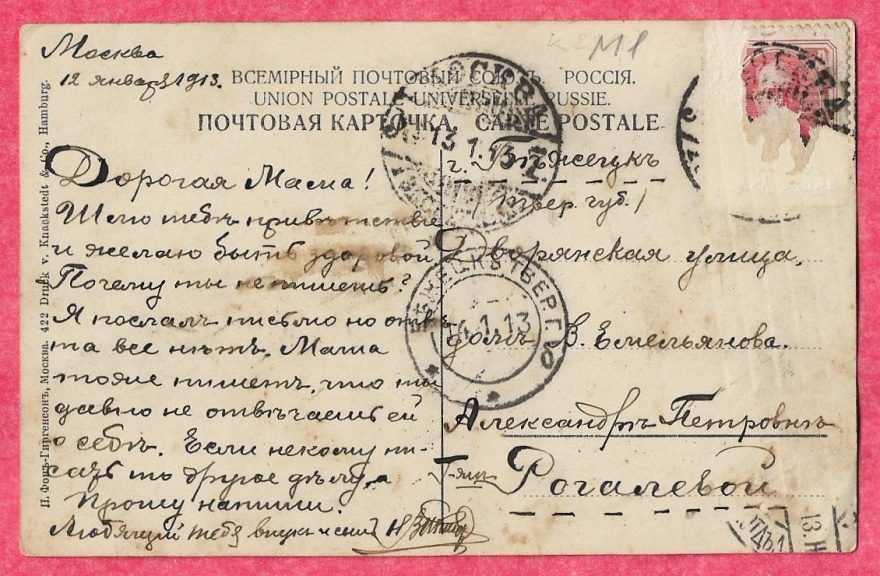 М1
Москва
12 января 1913.
ВСЕМІРНЫЙ ПОЧТОВЫЙ СОЮЗЪ. РОССІЯ.
UNION POSTALE UNIVERSELLE. RUSSIE.
ПОЧТОВАЯ КАРТОЧКА CARTE POSTALE
Дорогая Мама!
Шлю тебѣ привѣтствіе
и желаю быть здоровой
Почему ты не пишешь?
Я послалъ письмо но отвѣ-
та все нѣтъ. Маша
тоже пишетъ, что ты
давно не отвѣчаешь ей
о себѣ. Если некому пи-
сать то другое дѣло, а
Прошу напиши.
Любящій тебя
г. Бѣжецкъ
Твер. губ.
Дворянская улица,
домъ В. Емельянова.
Александрѣ Петровнѣ
Г-жѣ
Рогалевой
МОСКВА
13.1.13
БѢЖЕЦКЪ ТВЕР. Г.
14.1.13
МОСКВА
П. Фонъ-Гиргенсонъ, Москва. 422 Druck v. Knackstedt & Co., Hamburg.